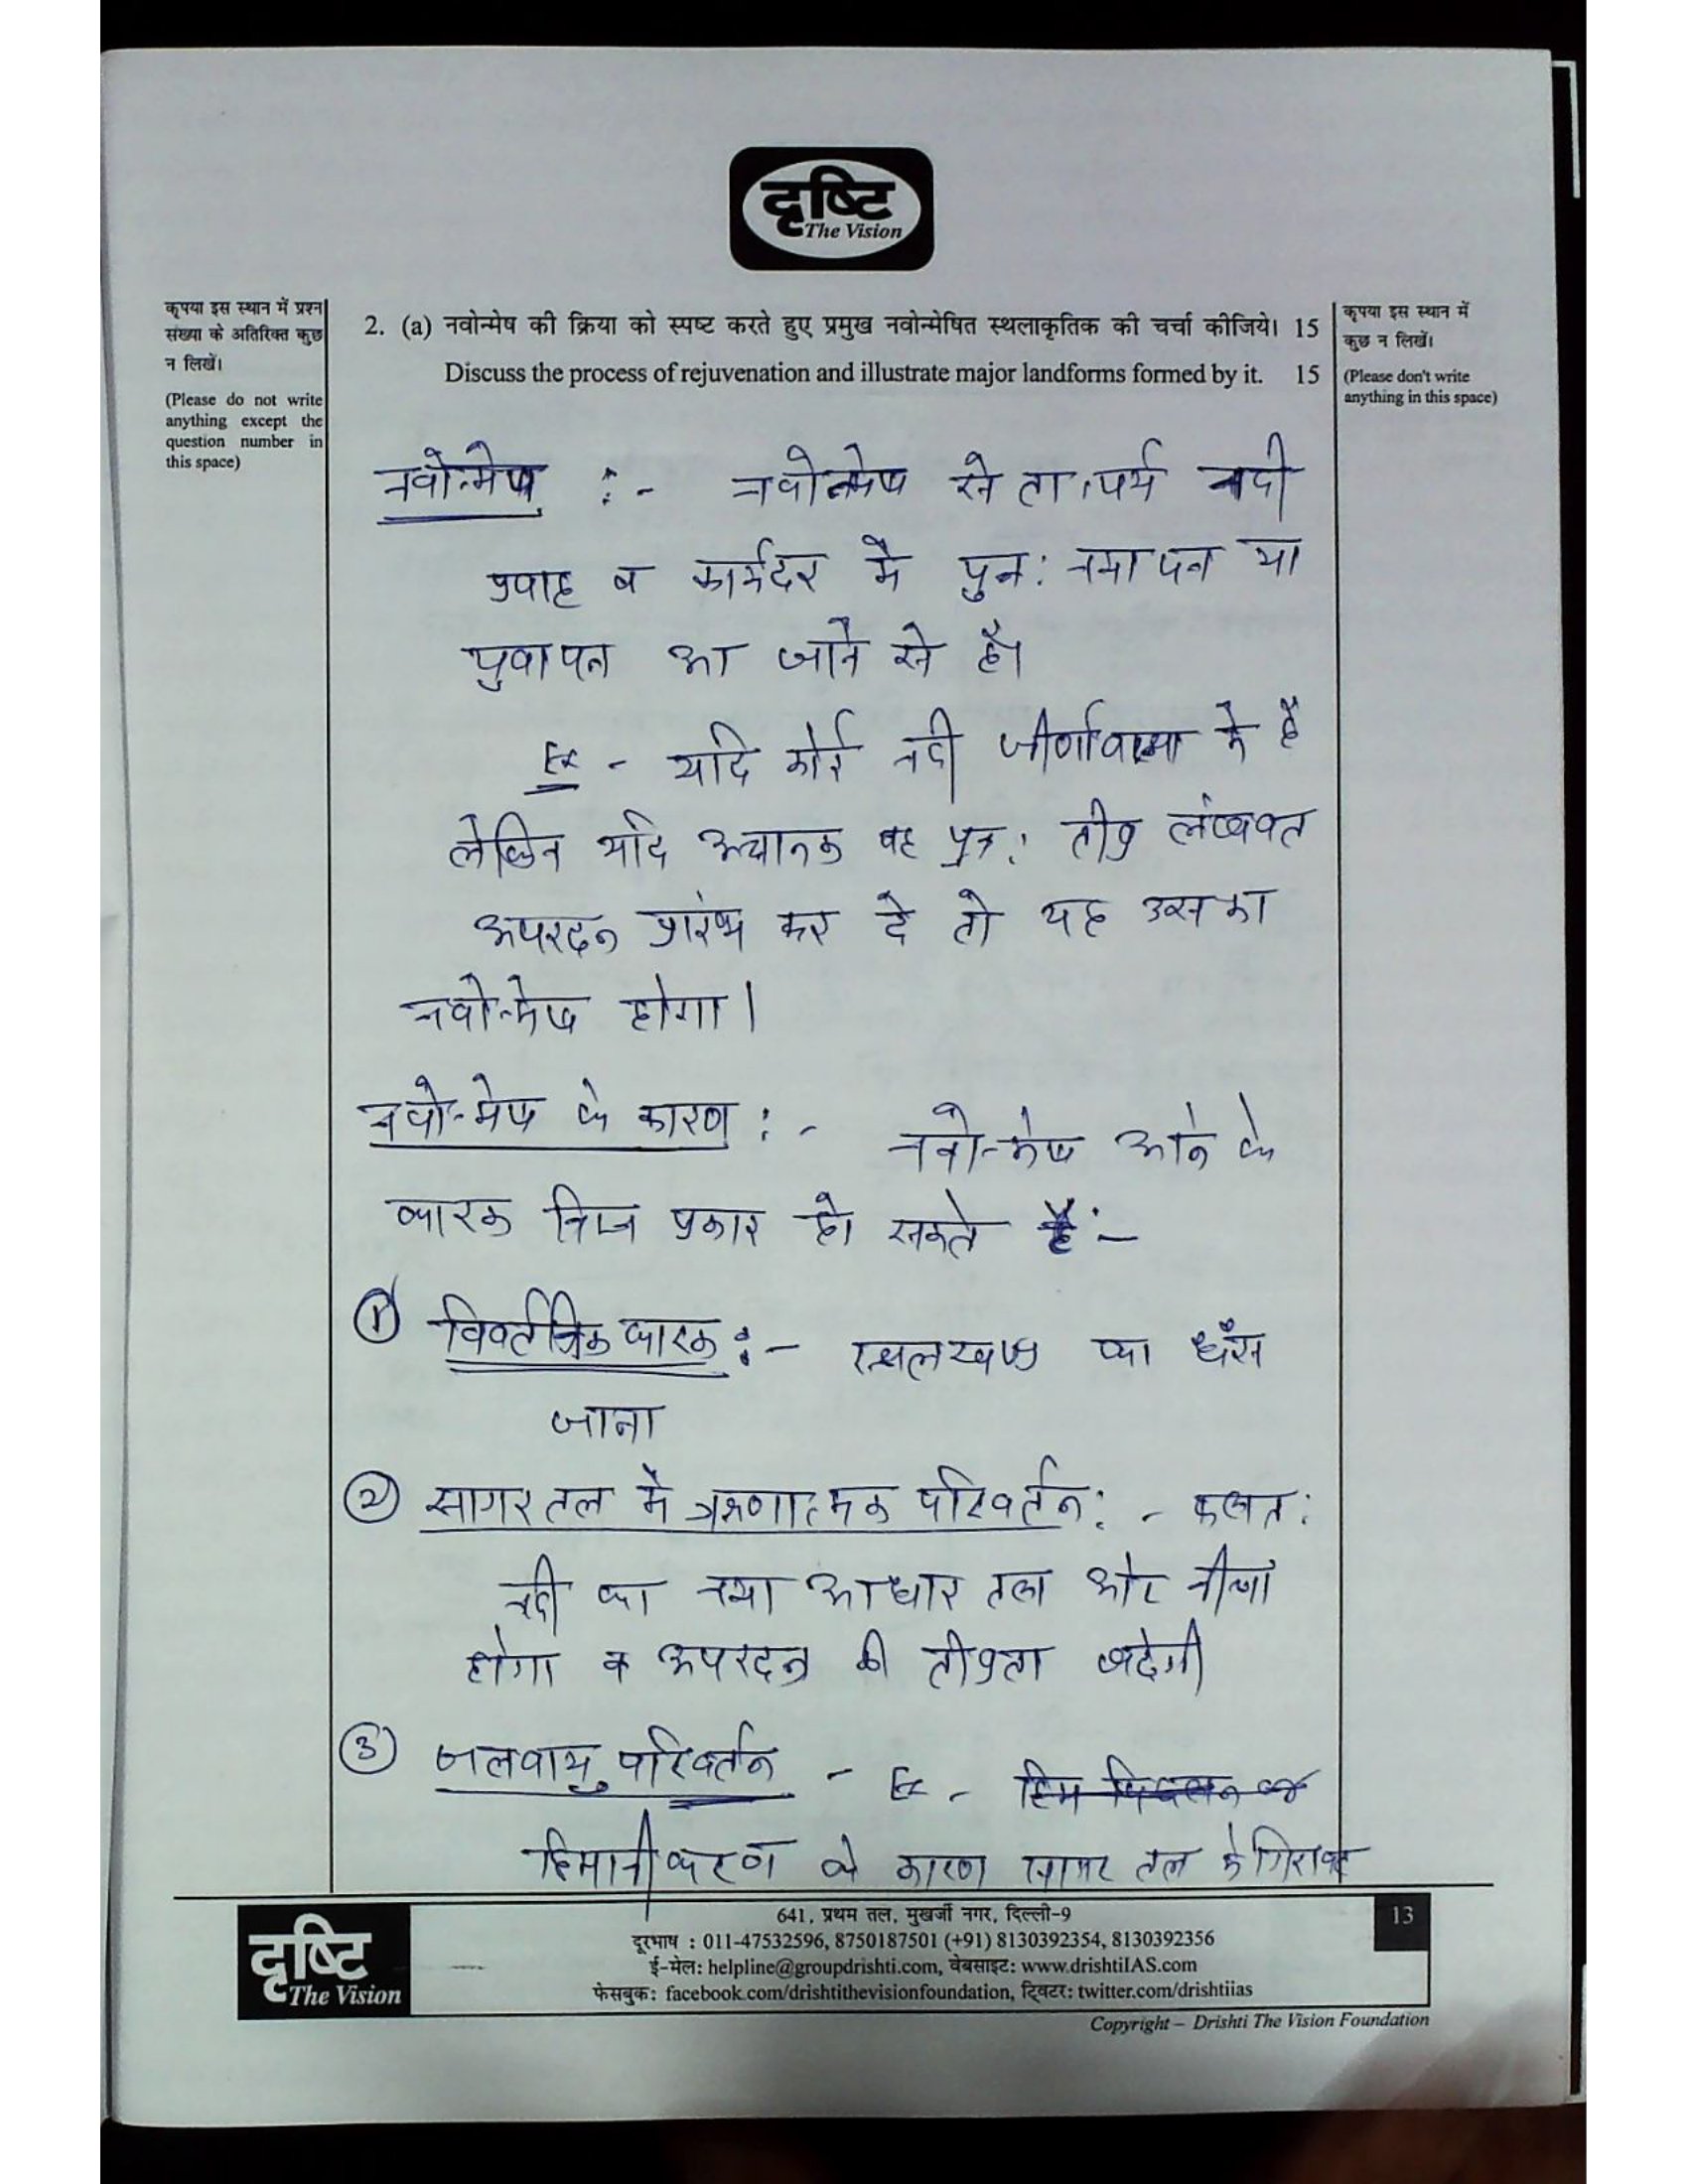 दृष्टि
The Vision
कृपया इस स्थान में प्रश्न
संख्या के अतिरिक्त कुछ
न लिखें।
(Please do not write
anything except the
question number in
this space)
2. (a) नवोन्मेष की क्रिया को स्पष्ट करते हुए प्रमुख नवोन्मेषित स्थलाकृतिक की चर्चा कीजिये। 15
Discuss the process of rejuvenation and illustrate major landforms formed by it. 15
कृपया इस स्थान में
कुछ न लिखें।
(Please don't write
anything in this space)
नवोन्मेष :- नवोन्मेष से तात्पर्य नदी
प्रवाह व कार्यदर में पुन: नयापन या
युवापन आ जाने से है।
Ex - यदि कोई नदी जीर्णावस्था में है
लेकिन यदि अचानक वह पुन: तीव्र लंबवत
अपरदन प्रारंभ कर दे तो यह उसका
नवोन्मेष होगा।
नवोन्मेष के कारण :- नवोन्मेष आने के
कारक निम्न प्रकार हो सकते हैं:-
① विवर्तनिक कारक :- स्थलखण्ड का धँस
जाना
② सागर तल में ऋणात्मक परिवर्तन: - फलत:
नदी का नया आधार तल और नीचा
होगा व अपरदन की तीव्रता बढ़ेगी
③ जलवायु परिवर्तन - Ex - हिम
हिमानीकरण के कारण सागर तल में गिरावट
दृष्टि
The Vision
641, प्रथम तल, मुखर्जी नगर, दिल्ली-9
दूरभाष : 011-47532596, 8750187501 (+91) 8130392354, 8130392356
ई-मेल: helpline@groupdrishti.com, वेबसाइट: www.drishtiIAS.com
फेसबुक: facebook.com/drishtithevisionfoundation, ट्विटर: twitter.com/drishtiias
13
Copyright – Drishti The Vision Foundation